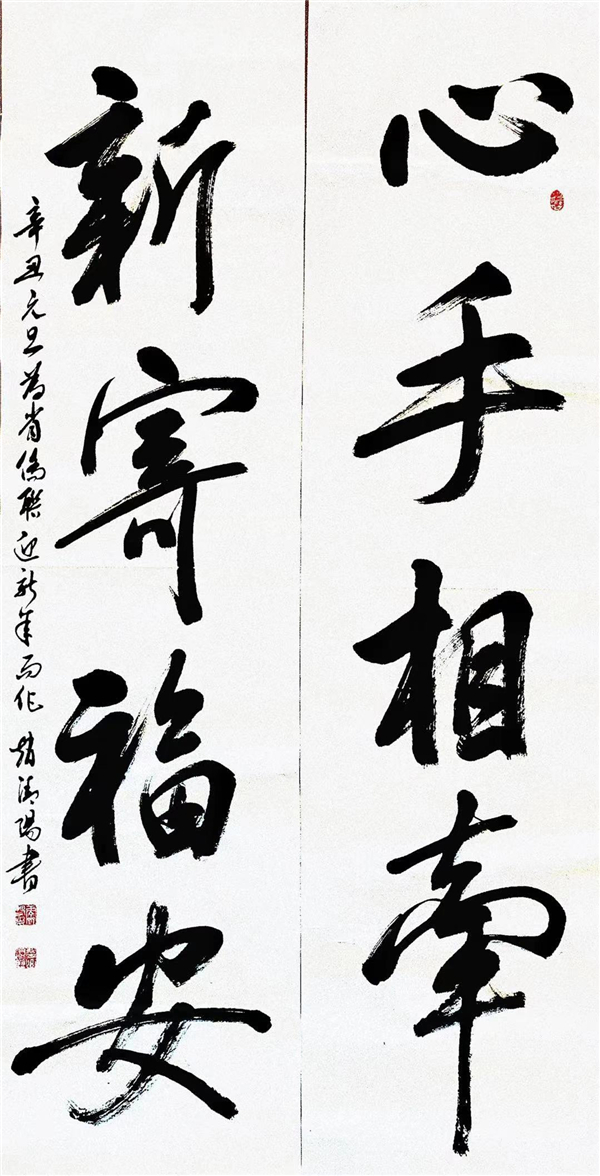 心手相牵
新寄福安
辛丑元旦为省侨联迎新年而作 赵清阳书